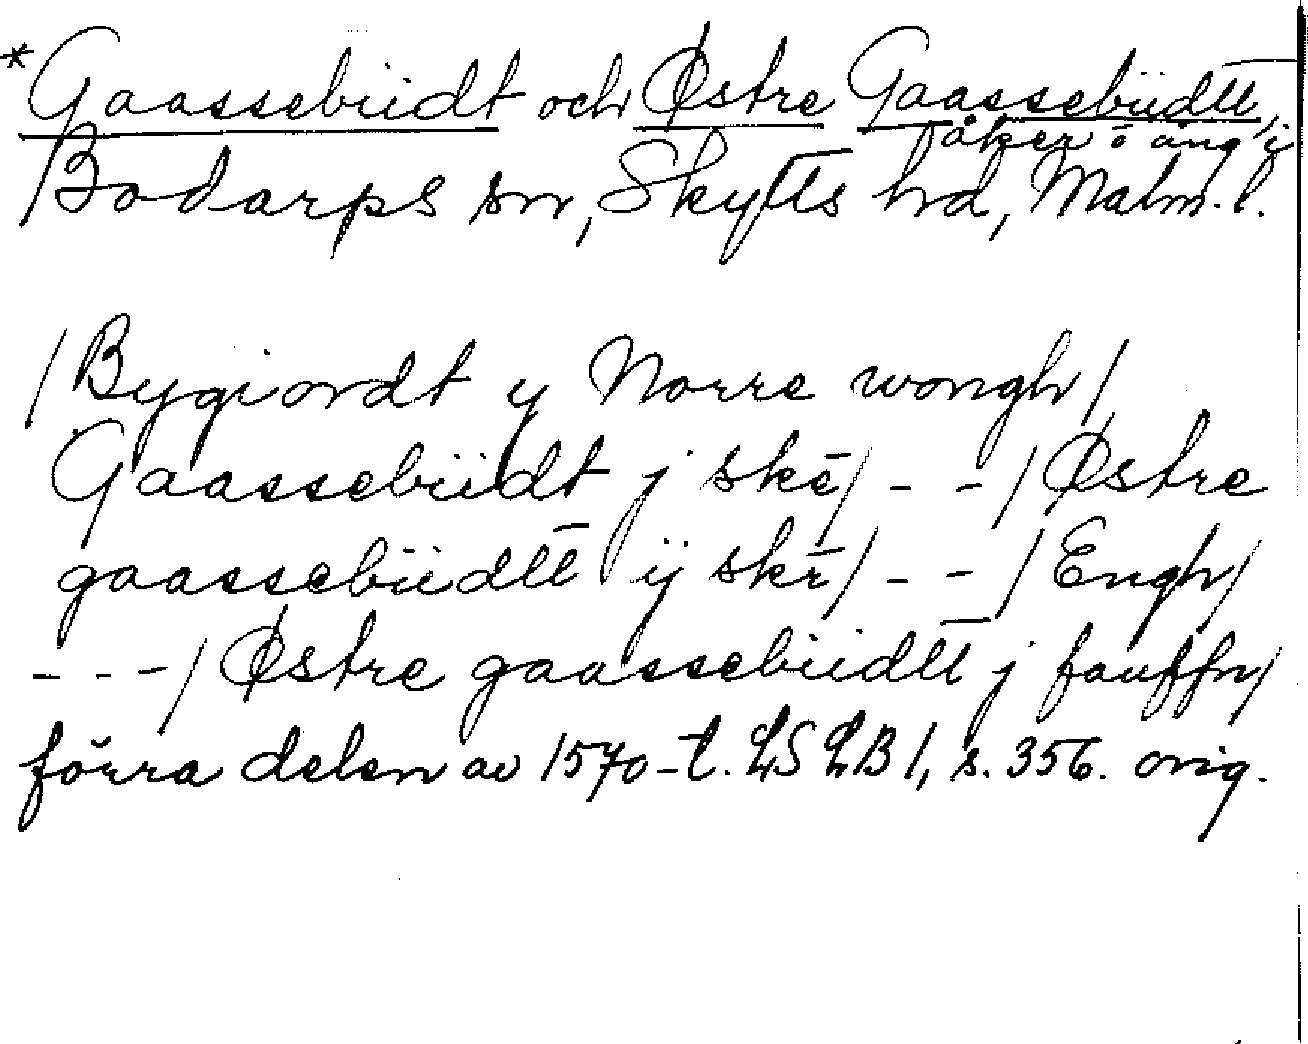 *Gaassebüdt och Østre Gaassebüdtt,
åker o äng i
Bodarps sn, Skytts hd, Malm. l.
/Bygiordt y Norre wongh/
Gaassebüdt j skē/ - - /Østre
gaassebüdtt ij skr̄/ - - /Engh/
- - - /Østre gaassebüdtt j fauffn/
förra delen av 1570-t. LSLB 1, s. 356. orig.